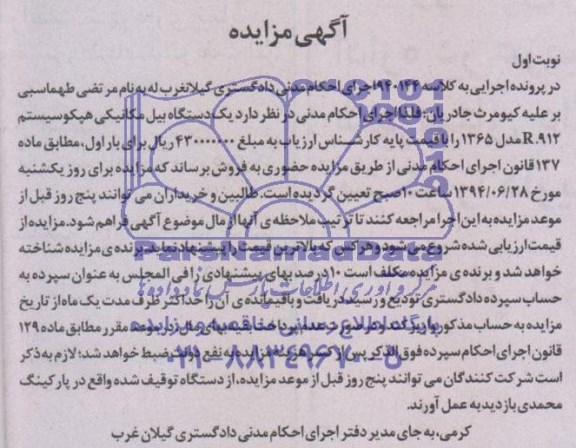 آگهی مزایده
نوبت اول
در پرونده اجرایی به کلاسه ۹۴۰۱۴۴ اجرای احکام مدنی دادگستری گیلانغرب له به نام مرتضی طهماسبی
بر علیه کیومرث جادریان: فلذا اجرای احکام مدنی در نظر دارد یک دستگاه بیل مکانیکی هپکوسیستم
R.۹۱۲ مدل ۱۳۶۵ را با قیمت پایه کارشناس ارزیاب به مبلغ ۴۳۰۰۰۰۰۰۰ ریال برای بار اول، مطابق ماده
۱۳۷ قانون اجرای احکام مدنی از طریق مزایده حضوری به فروش برساند که مزایده برای روز یکشنبه
مورخ ۱۳۹۴/۰۶/۲۸ ساعت ۱۰ صبح تعیین گردیده است. طالبین و خریداران می توانند پنج روز قبل از
موعد مزایده به این اجرا مراجعه کنند تا ترتیب ملاحظه ی آنها از مال موضوع آگهی فراهم شود. مزایده از
قیمت ارزیابی شده شروع می شود و هر کس که بالاترین قیمت را پیشنهاد نماید برنده ی مزایده شناخته
خواهد شد و برنده ی مزایده مکلف است ۱۰ درصد بهای پیشنهادی را فی المجلس به عنوان سپرده به
حساب سپرده دادگستری تودیع و رسید دریافت و باقیمانده ی آن را حداکثر ظرف مدت یک ماه از تاریخ
مزایده به حساب مذکور واریز کند و در صورت عدم پرداخت بقیه بهای مال در موعد مقرر مطابق ماده ۱۲۹
قانون اجرای احکام سپرده فوق الذکر پس از کسر هزینه مزایده به نفع دولت ضبط خواهد شد؛ لازم به ذکر
است شرکت کنندگان می توانند پنج روز قبل از موعد مزایده، از دستگاه توقیف شده واقع در پارکینگ
محمدی بازدید به عمل آورند.
کرمی، به جای مدیر دفتر اجرای احکام مدنی دادگستری گیلان غرب
ParsNamadData
مرکز فرآوری اطلاعات پارس نماد داده ها
پایگاه اطلاع رسانی مناقصه و مزایده
۰۲۱-۸۸۳۴۹۶۷۰-۵